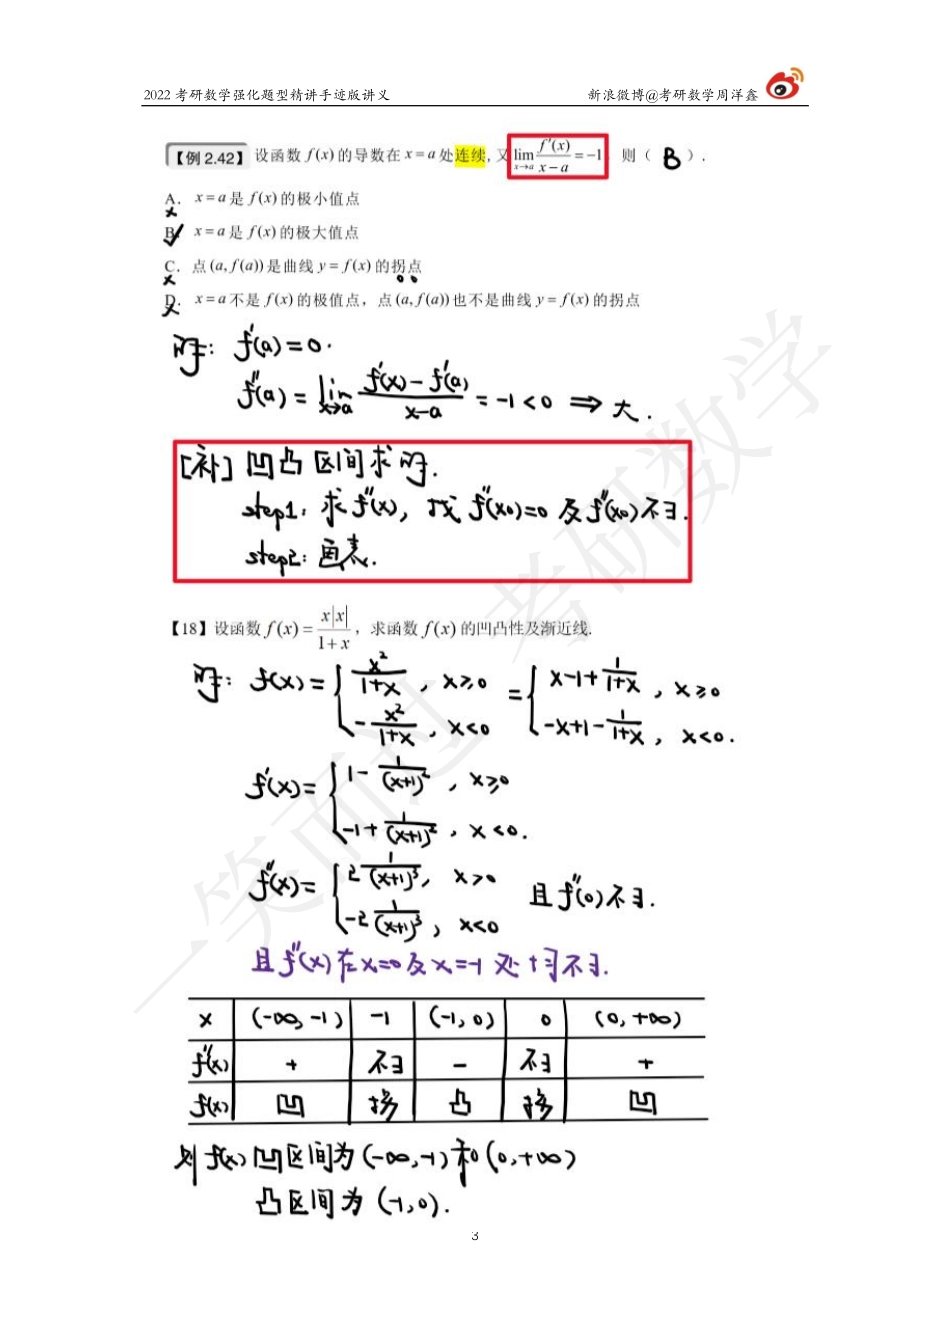 2022 考研数学强化题型精讲手迹版讲义 新浪微博@考研数学周洋鑫
【例 2.42】 设函数 f(x) 的导数在 x = a 处连续, 又 lim_{x→a} f'(x)/(x−a) = −1, 则 ( B ).
A. x = a 是 f(x) 的极小值点
B. x = a 是 f(x) 的极大值点
C. 点 (a, f(a)) 是曲线 y = f(x) 的拐点
D. x = a 不是 f(x) 的极值点, 点 (a, f(a)) 也不是曲线 y = f(x) 的拐点
解: f'(a)=0.
f''(a) = lim_{x→a} (f'(x)−f'(a))/(x−a) = −1<0 ⇒ 大.
[补] 凹凸区间求解.
step1: 求f''(x), 找f''(x0)=0 及f''(x0)不∃.
step2: 画表.
【18】设函数 f(x) = x|x|/(1+x), 求函数 f(x) 的凹凸性及渐近线.
解: f(x)= { x²/(1+x), x≥0 = { x−1+1/(1+x), x≥0
−x²/(1+x), x<0 −x+1−1/(1+x), x<0.
f'(x)= { 1−1/(x+1)², x≥0
−1+1/(x+1)², x<0.
f''(x)= { 2 1/(x+1)³, x>0 且f''(0)不∃.
−2 1/(x+1)³, x<0
且f''(x)在x=0及x=−1处均不∃.
x (−∞,−1) −1 (−1,0) 0 (0,+∞)
f''(x) + 不∃ − 不∃ +
f(x) 凹 拐 凸 拐 凹
则f(x)凹区间为(−∞,−1)和(0,+∞)
凸区间为(−1,0).
3
一笑而过 考研数学